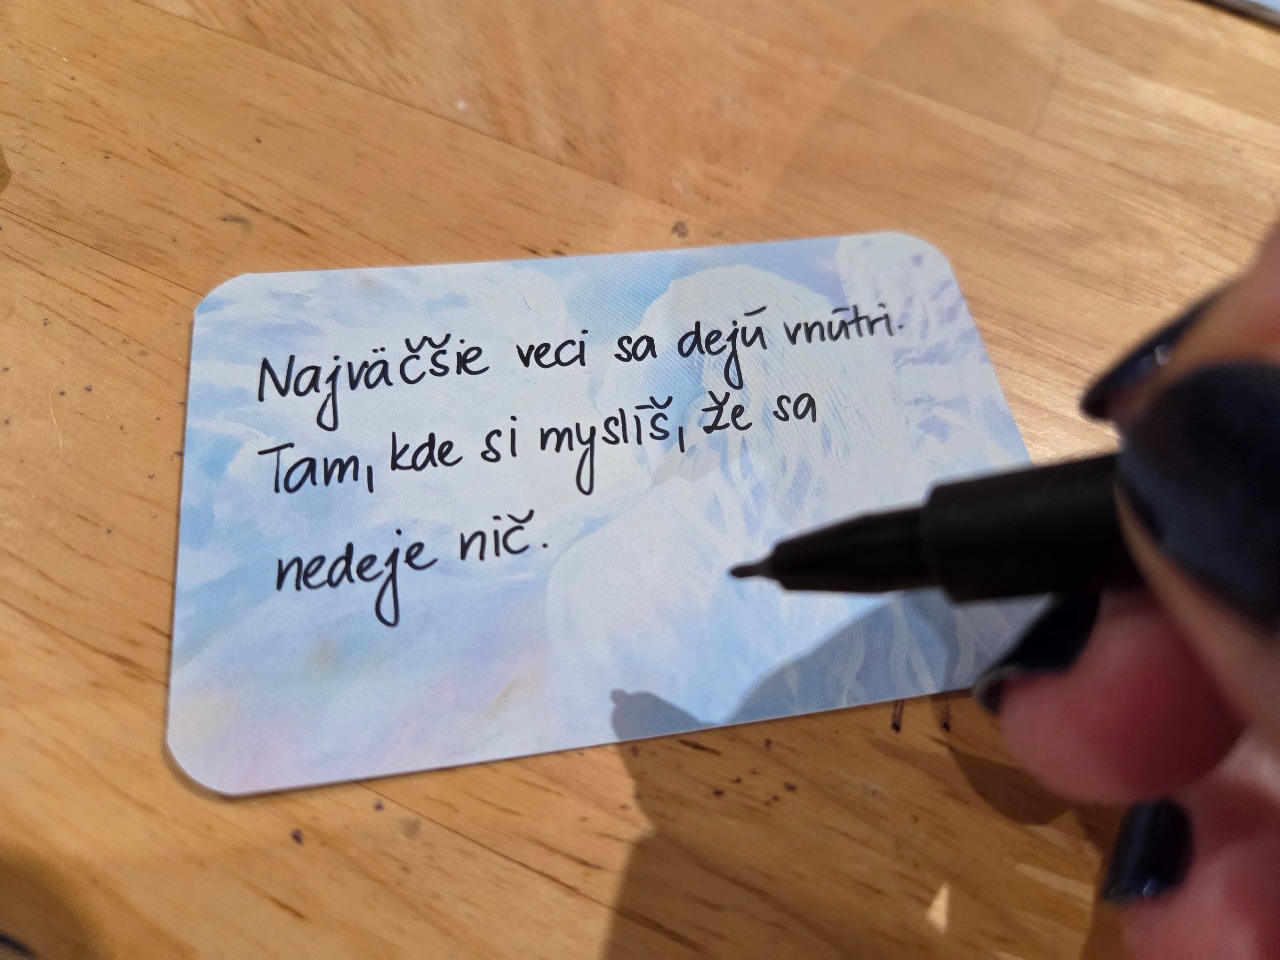 Najväčšie veci sa dejú vnútri.
Tam, kde si myslíš, že sa
nedeje nič.